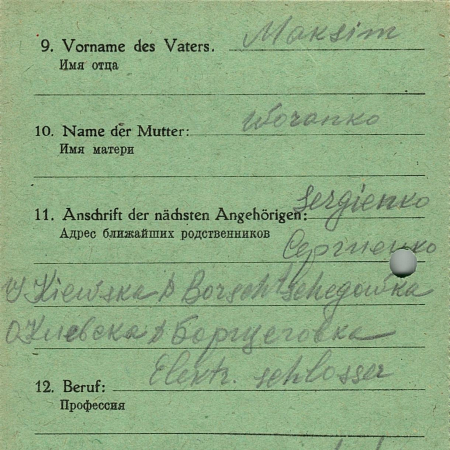 9. Vorname des Vaters. Maksim
Имя отца
10. Name der Mutter: Woranko
Имя матери
Sergienko
11. Anschrift der nächsten Angehörigen:
Адрес ближайших родственников
Сергиенко
Kiewska Borschtschegowka
О Киевска д Борщеговка
Elektr. schlosser
12. Beruf:
Профессия